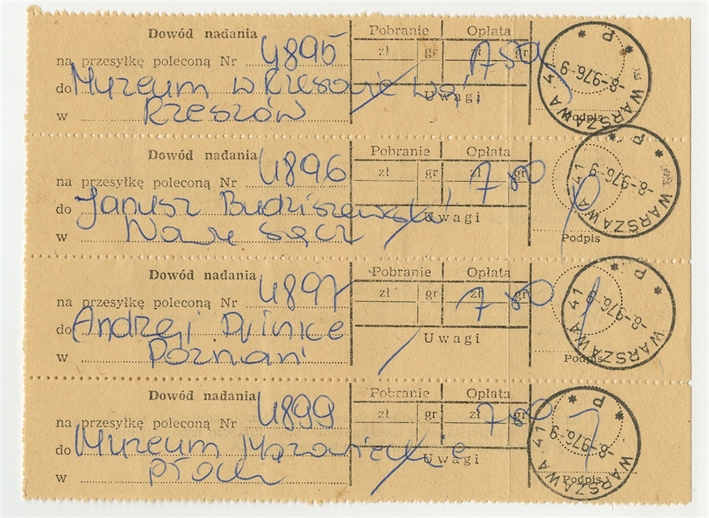 Dowód nadania Pobranie Opłata
na przesyłkę poleconą Nr 4895 zł gr zł gr
do Muzeum w Rzeszowie
Uwagi
w Rzeszów
Podpis
WARSZAWA 41 * P *
-8-976-9
Dowód nadania Pobranie Opłata
na przesyłkę poleconą Nr 4896 zł gr zł gr 780
do Janusz Budziszewski
Uwagi
w Nowy Sącz
Podpis
WARSZAWA 41 * P *
-8-976-9
Dowód nadania Pobranie Opłata
na przesyłkę poleconą Nr 4897 zł gr zł gr 780
do Andrzej
Uwagi
w Poznań
Podpis
WARSZAWA 41 * P *
-8-976-9
Dowód nadania Pobranie Opłata
na przesyłkę poleconą Nr 4899 zł gr zł gr 780
do Muzeum Mazowieckie
Uwagi
w Płock
Podpis
WARSZAWA 41 * P *
-8-976-9